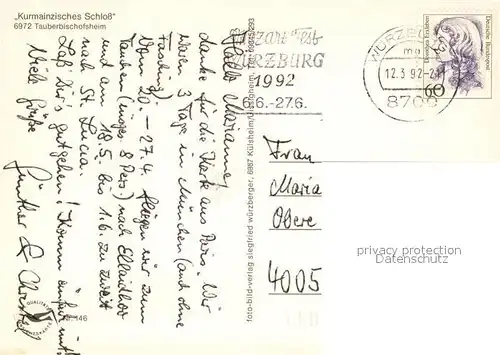 „Kurmainzisches Schloß“
6972 Tauberbischofsheim
Hallo Marianne,
danke für die Karte aus Paris. Wir
waren 3 Tage in München (auch ohne
Fasching)
Vom 20. – 27.4 fliegen wir zum
Tauchen (insges. 8 Pers.) nach
und am 18.5. bis 1.6. zu zweit
nach St. Lucia.
Laß Dir's gutgehen! Komm
Viele Grüße
Günther &
QUALITÄTS
Nr. 146
foto-bild-verlag siegfried würzberger, 6987 Külsheim/
Mozart Fest
WÜRZBURG
1992
6.6.-27.6.
WÜRZBURG
12.3.92-21
8700
Deutsche Bundespost
60
Frau
Maria
Obere
4005
privacy protection
DSGVO